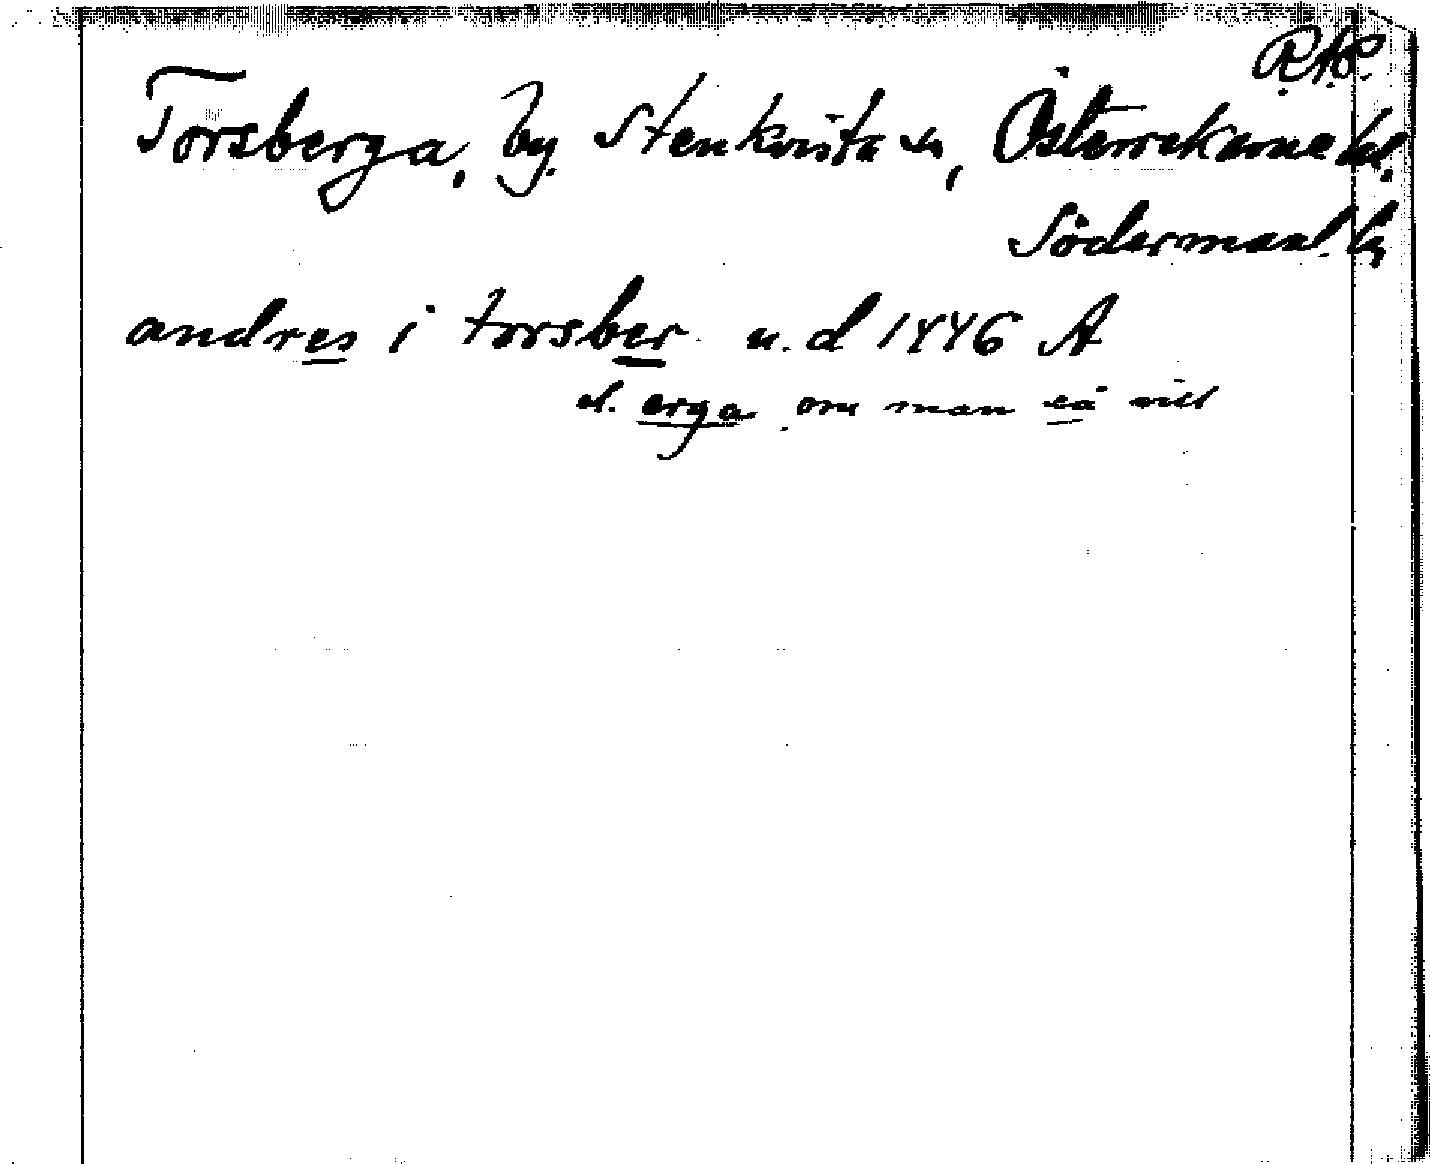 R.A.P.
Torsberga, by. Stenkvista sn, Österrekarne hd.
Södermanl. l.
andres i torsber u. d 1446 A
el. erga om man så vill